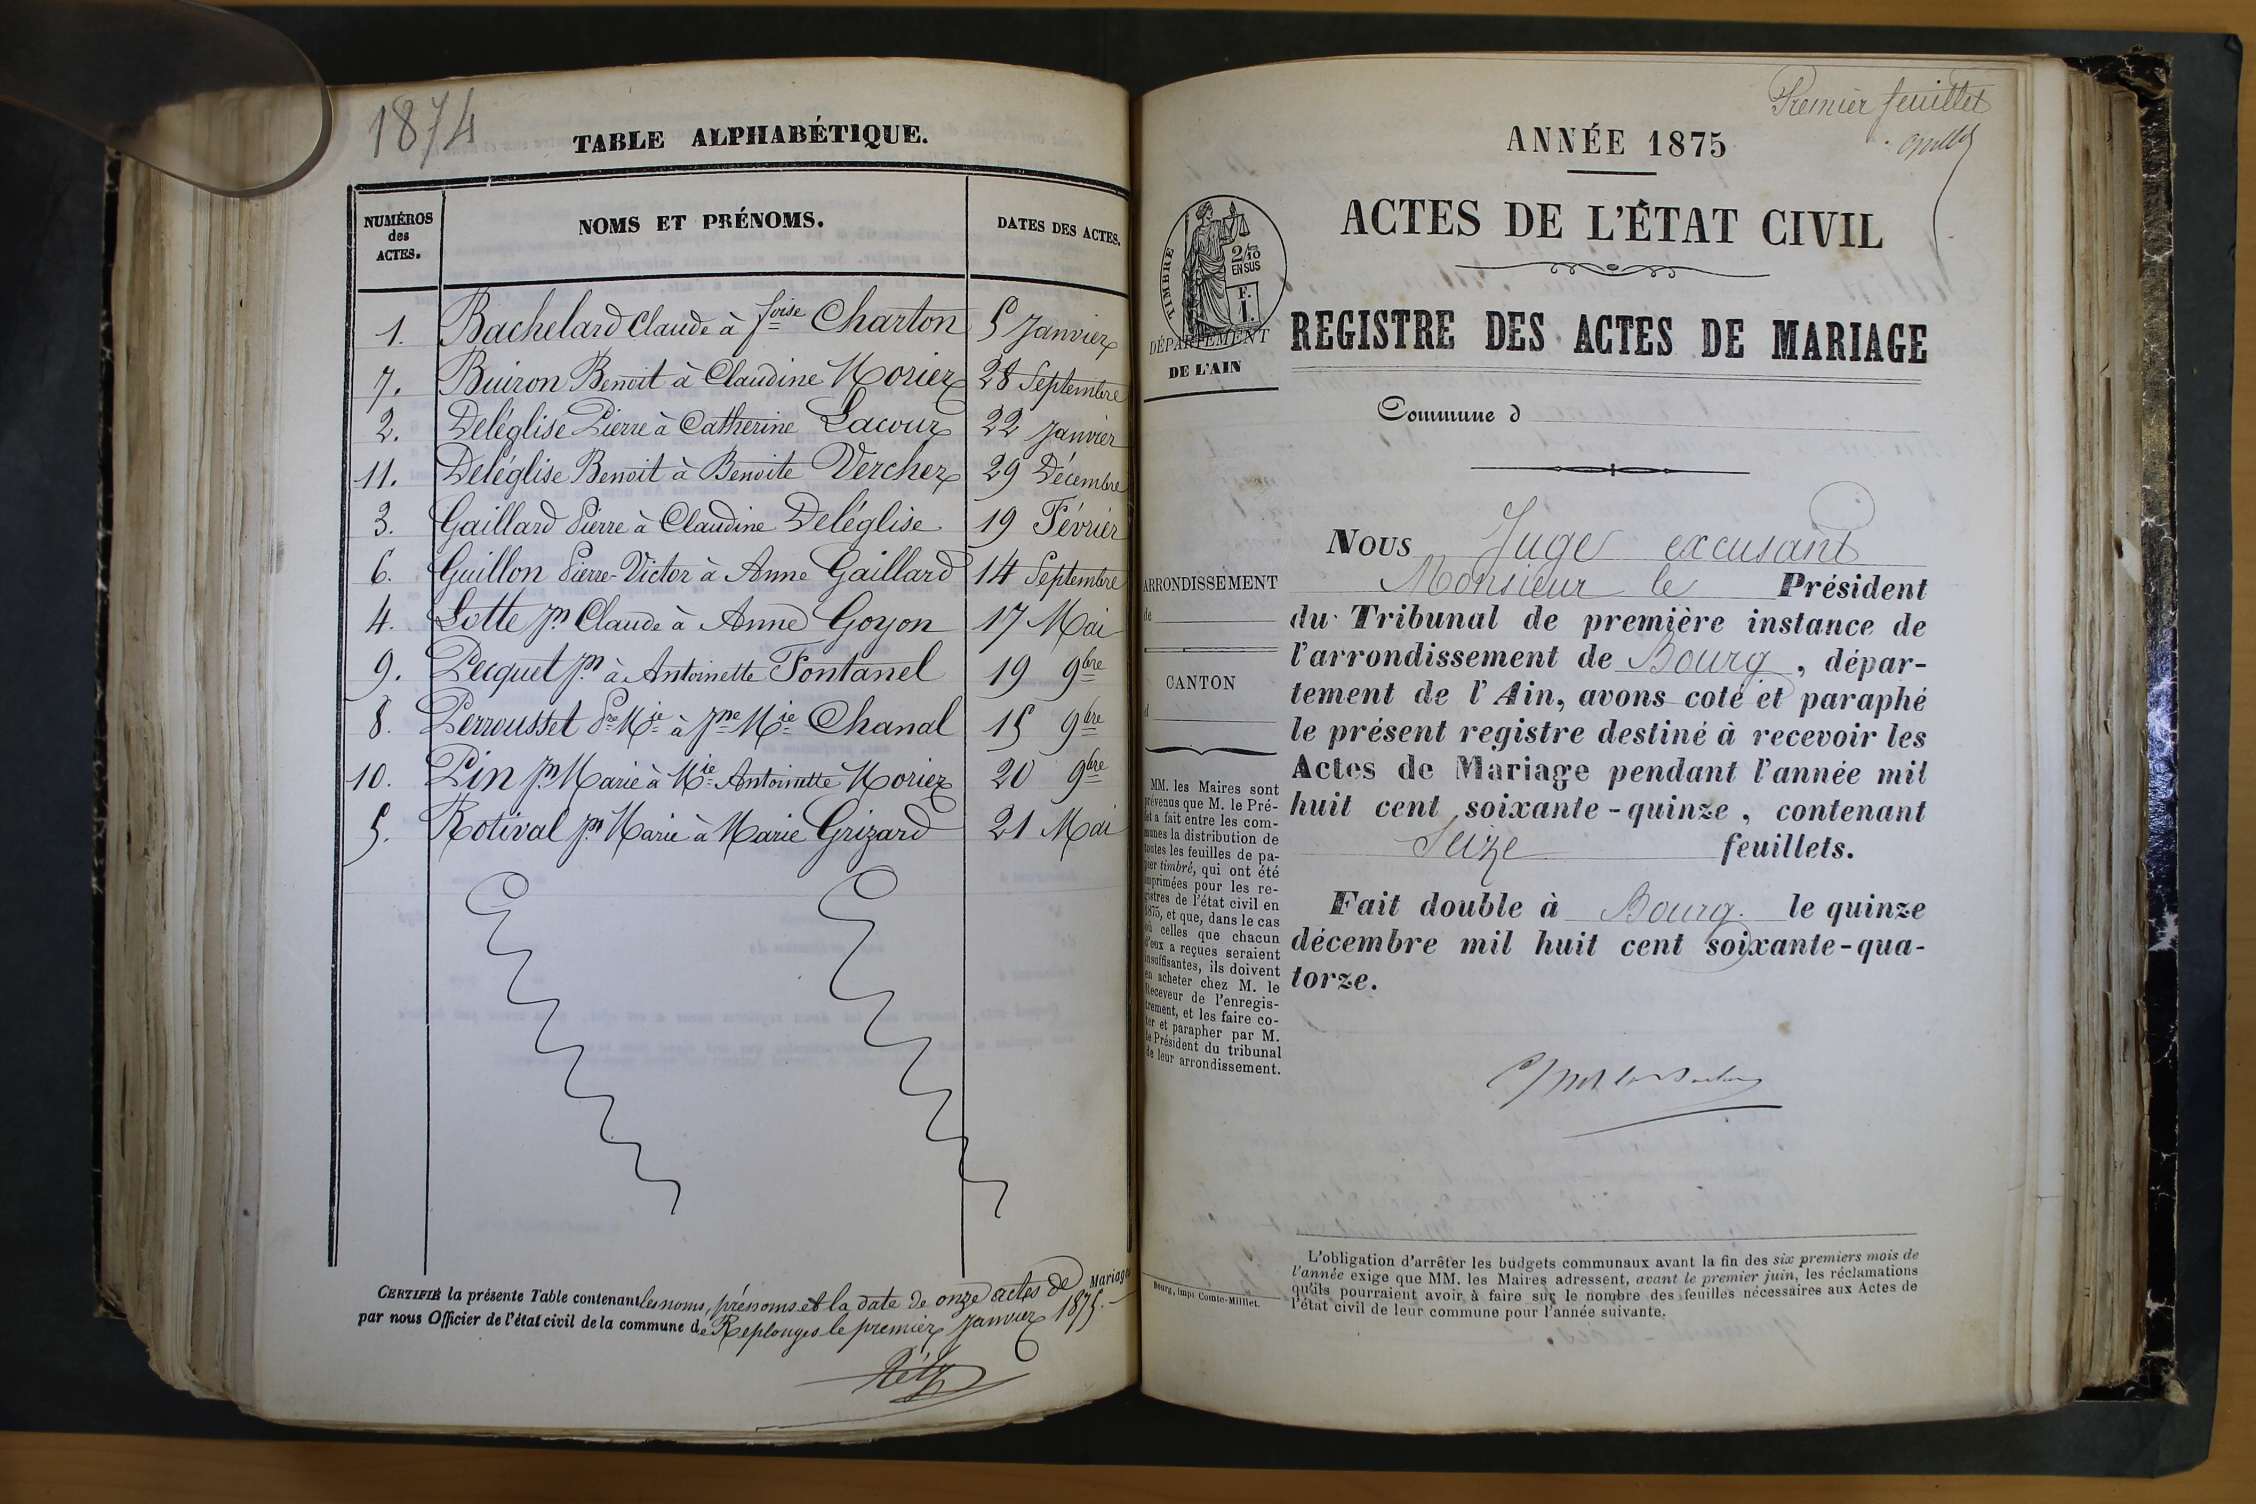 1874
TABLE ALPHABÉTIQUE.
NUMÉROS des ACTES. NOMS ET PRÉNOMS. DATES DES ACTES.
1. Bachelard Claude à foise Charton 5 Janvier
7. Buiron Benoit à Claudine Morier 28 Septembre
2. Deléglise Pierre à Catherine Lacour 22 Janvier
11. Deléglise Benoit à Benoite Vercher 29 Décembre
3. Gaillard Pierre à Claudine Deléglise 19 Février
6. Guillon Pierre-Victor à Anne Gaillard 14 Septembre
4. Lotte Jn Claude à Anne Goyon 17 Mai
9. Pecquet Jn à Antoinette Fontanel 19 9bre
8. Perrousset Pre Mie à Jne Mie Chanal 15 9bre
10. Pin Jn Marie à Mie Antoinette Morier 20 9bre
5. Rotival Jn Marie à Marie Grizard 21 Mai
CERTIFIÉ la présente Table contenant les noms, prénoms et la date de onze actes de Mariage
par nous Officier de l'état civil de la commune de Replonges le premier Janvier 1875.
Premier feuillet
ANNÉE 1875
ACTES DE L'ÉTAT CIVIL
TIMBRE
2/10
EN SUS
F.
1.
DÉPARTEMENT
DE L'AIN
REGISTRE DES ACTES DE MARIAGE
Commune d
ARRONDISSEMENT
de
CANTON
d
MM. les Maires sont
prévenus que M. le Pré-
fet a fait entre les com-
munes la distribution de
toutes les feuilles de pa-
pier timbré, qui ont été
imprimées pour les re-
gistres de l'état civil en
1875, et que, dans le cas
où celles que chacun
d'eux a reçues seraient
insuffisantes, ils doivent
en acheter chez M. le
Receveur de l'enregis-
trement, et les faire co-
ter et parapher par M.
le Président du tribunal
de leur arrondissement.
Nous Juge excusant
Monsieur le Président
du Tribunal de première instance de
l'arrondissement de Bourg, dépar-
tement de l'Ain, avons coté et paraphé
le présent registre destiné à recevoir les
Actes de Mariage pendant l'année mil
huit cent soixante-quinze, contenant
Seize feuillets.
Fait double à Bourg. le quinze
décembre mil huit cent soixante-qua-
torze.
L'obligation d'arrêter les budgets communaux avant la fin des six premiers mois de
l'année exige que MM. les Maires adressent, avant le premier juin, les réclamations
qu'ils pourraient avoir à faire sur le nombre des feuilles nécessaires aux Actes de
l'état civil de leur commune pour l'année suivante.
Bourg, imp. Comte-Milliet.